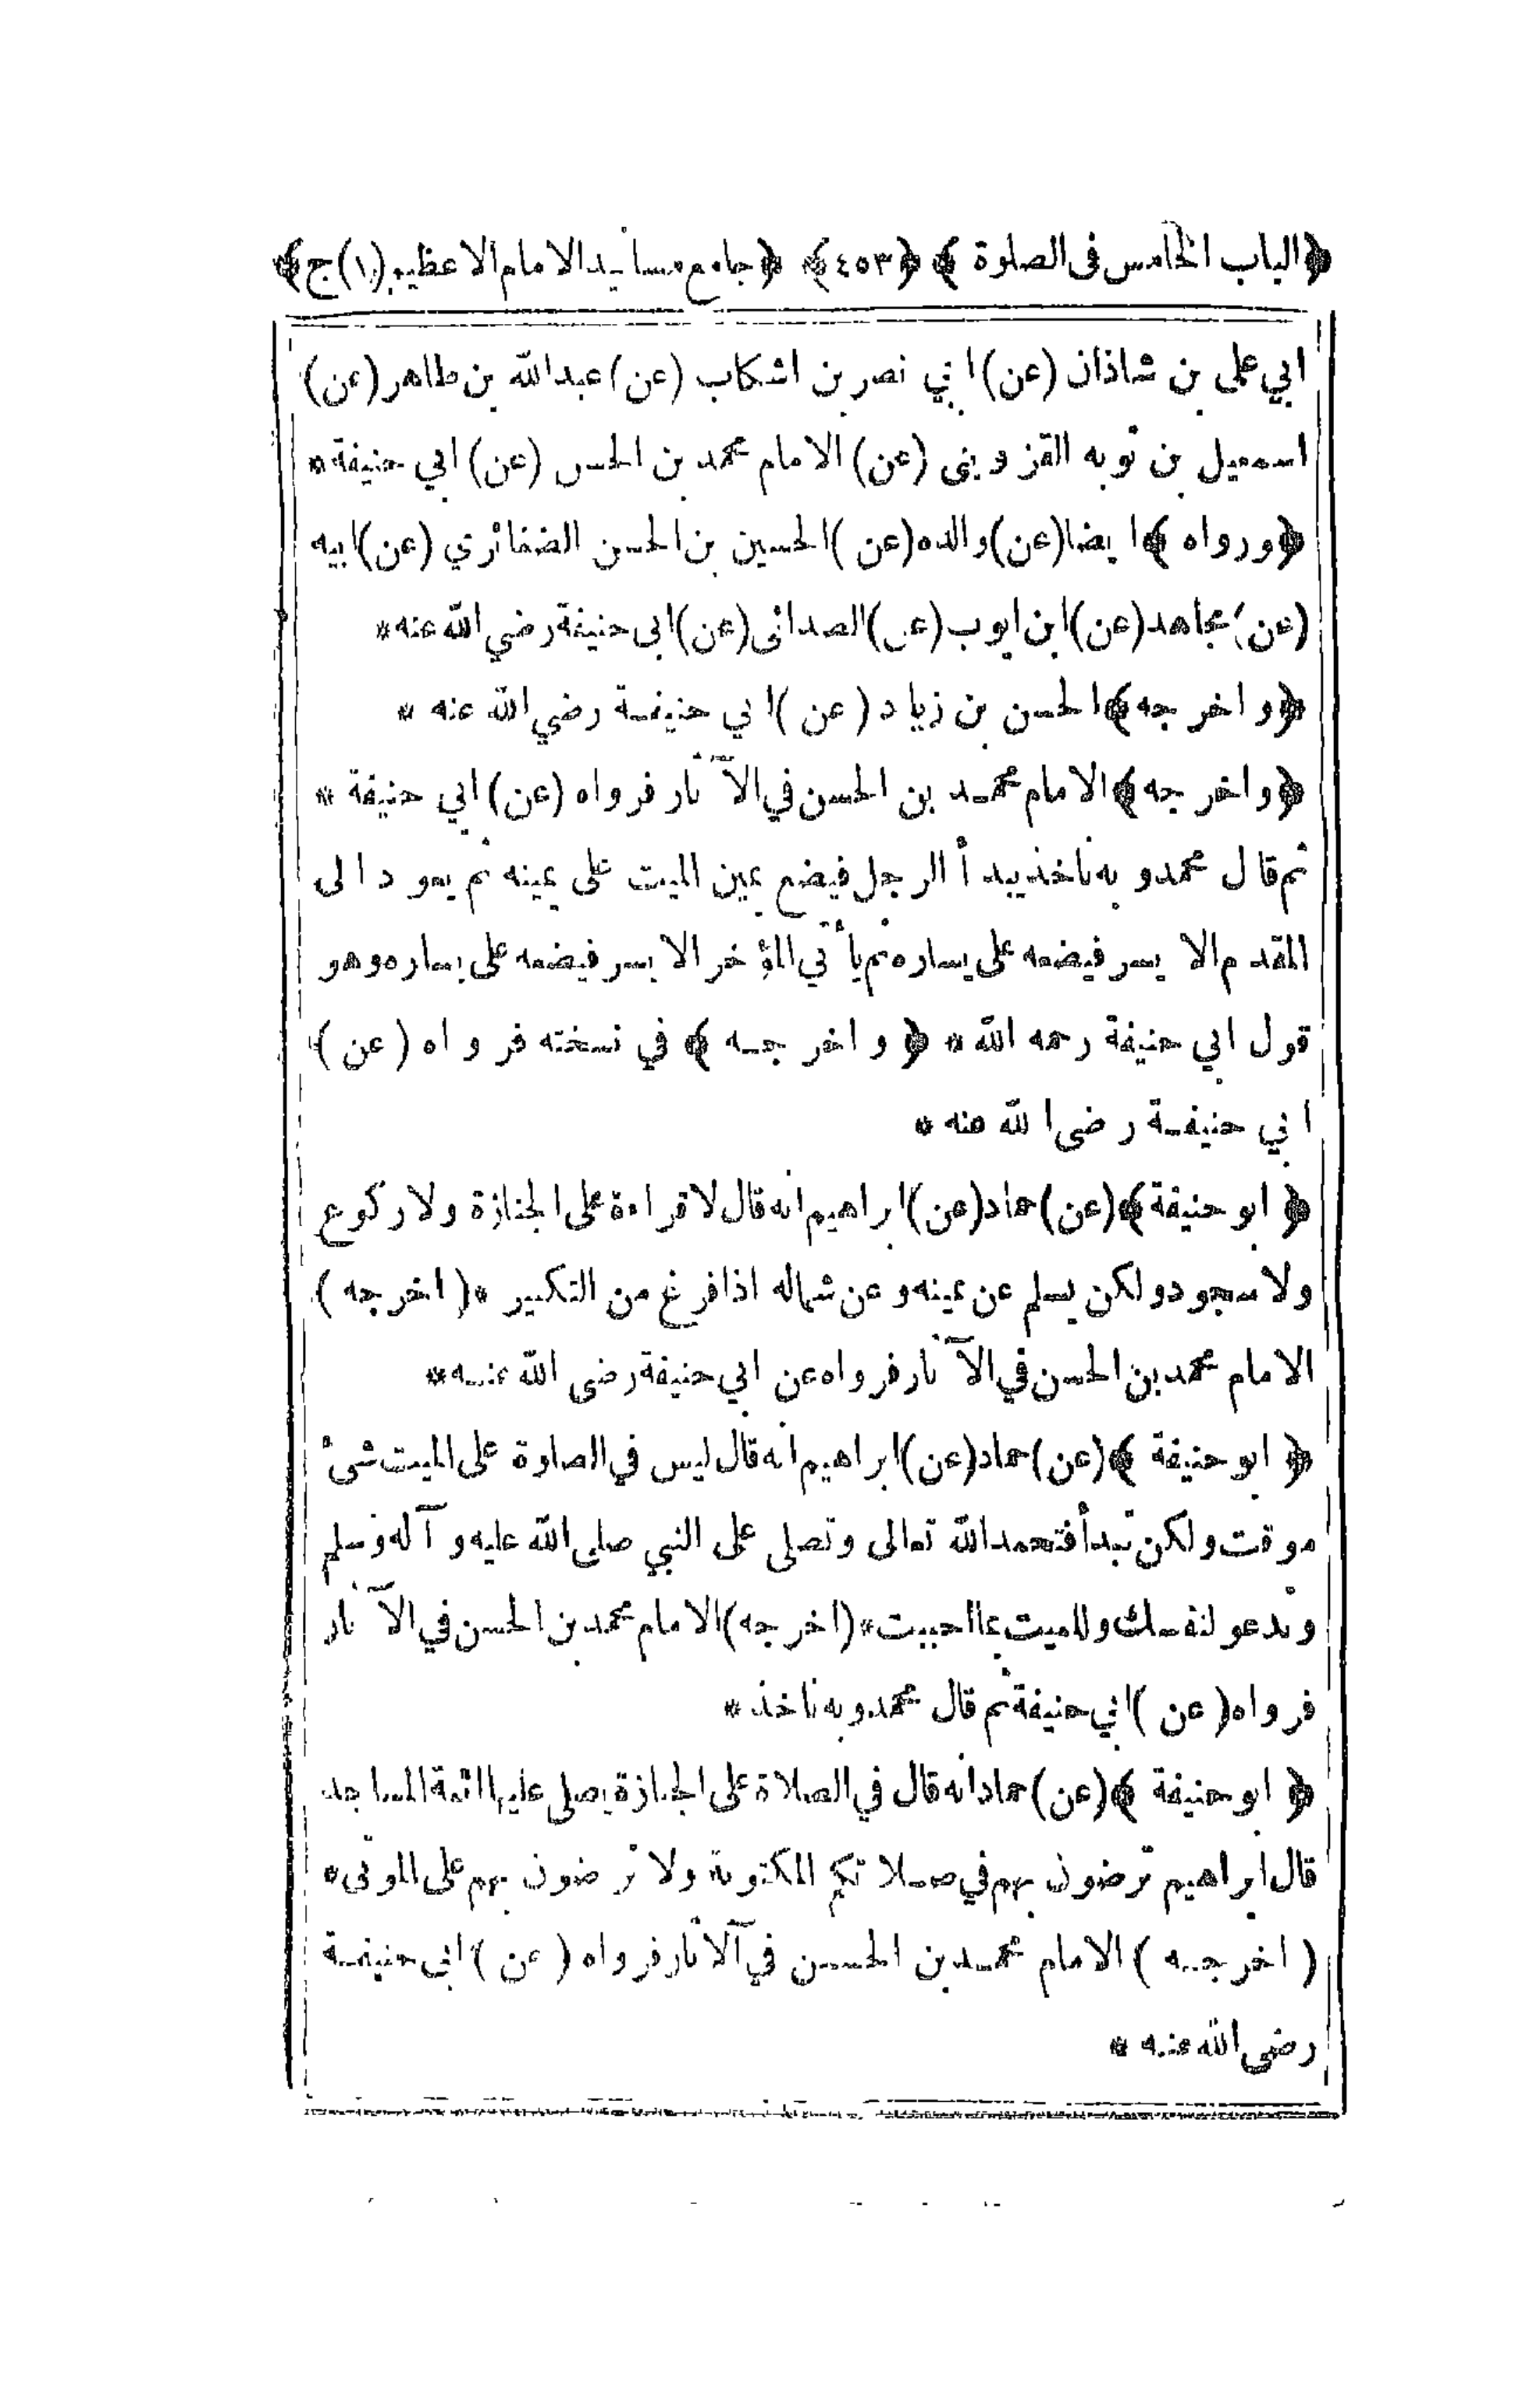 ﴿الباب الخامس فى الصلوة﴾ ﴿٤٥٣﴾ ﴿جامع مسانيد الامام الاعظم (١) ج﴾
ابي على بن شاذان (عن) ابي نصر بن اشكاب (عن) عبدالله بن طاهر (عن)
اسمعيل بن توبه القزوينى (عن) الامام محمد بن الحسن (عن) ابي حنيفة *
﴿ورواه﴾ ايضا (عن) والده (عن) الحسين بن الحسن الغضائري (عن) ابيه
(عن) مجاهد (عن) ابن ايوب (عن) الصدائى (عن) ابى حنيفة رضي الله عنه *
﴿واخرجه﴾ الحسن بن زياد (عن) ابي حنيفة رضي الله عنه *
﴿واخرجه﴾ الامام محمد بن الحسن في الآثار فرواه (عن) ابي حنيفة *
ثم قال محمد وبه ناخذ يبدأ الرجل فيضع يمين الميت على يمينه ثم يعود الى
المقدم الايسر فيضعه على يساره ثم يأتي المؤخر الايسر فيضعه على يساره وهو
قول ابي حنيفة رحمه الله * ﴿واخرجه﴾ في نسخته فرواه (عن)
ابي حنيفة رضى الله عنه *
﴿ابو حنيفة﴾ (عن) حماد (عن) ابراهيم انه قال لا قراءة على الجنازة ولا ركوع
ولا سجود ولكن يسلم عن يمينه وعن شماله اذا فرغ من التكبير * (اخرجه)
الامام محمد بن الحسن في الآثار فرواه عن ابي حنيفة رضى الله عنه *
﴿ابو حنيفة﴾ (عن) حماد (عن) ابراهيم انه قال ليس في الصلوة على الميت شىٔ
موقت ولكن تبدأ فتحمد الله تعالى وتصلى على النبي صلى الله عليه وآله وسلم
وتدعو لنفسك وللميت بما احببت * (اخرجه) الامام محمد بن الحسن في الآثار
فرواه (عن) ابي حنيفة ثم قال محمد وبه ناخذ *
﴿ابو حنيفة﴾ (عن) حماد انه قال في الصلاة على الجنازة يصلى عليها ائمة المساجد
قال ابراهيم ترضون بهم في صلاتكم المكتوبة ولا ترضون بهم على الموتى *
(اخرجه) الامام محمد بن الحسن في الآثار فرواه (عن) ابى حنيفة
رضى الله عنه *